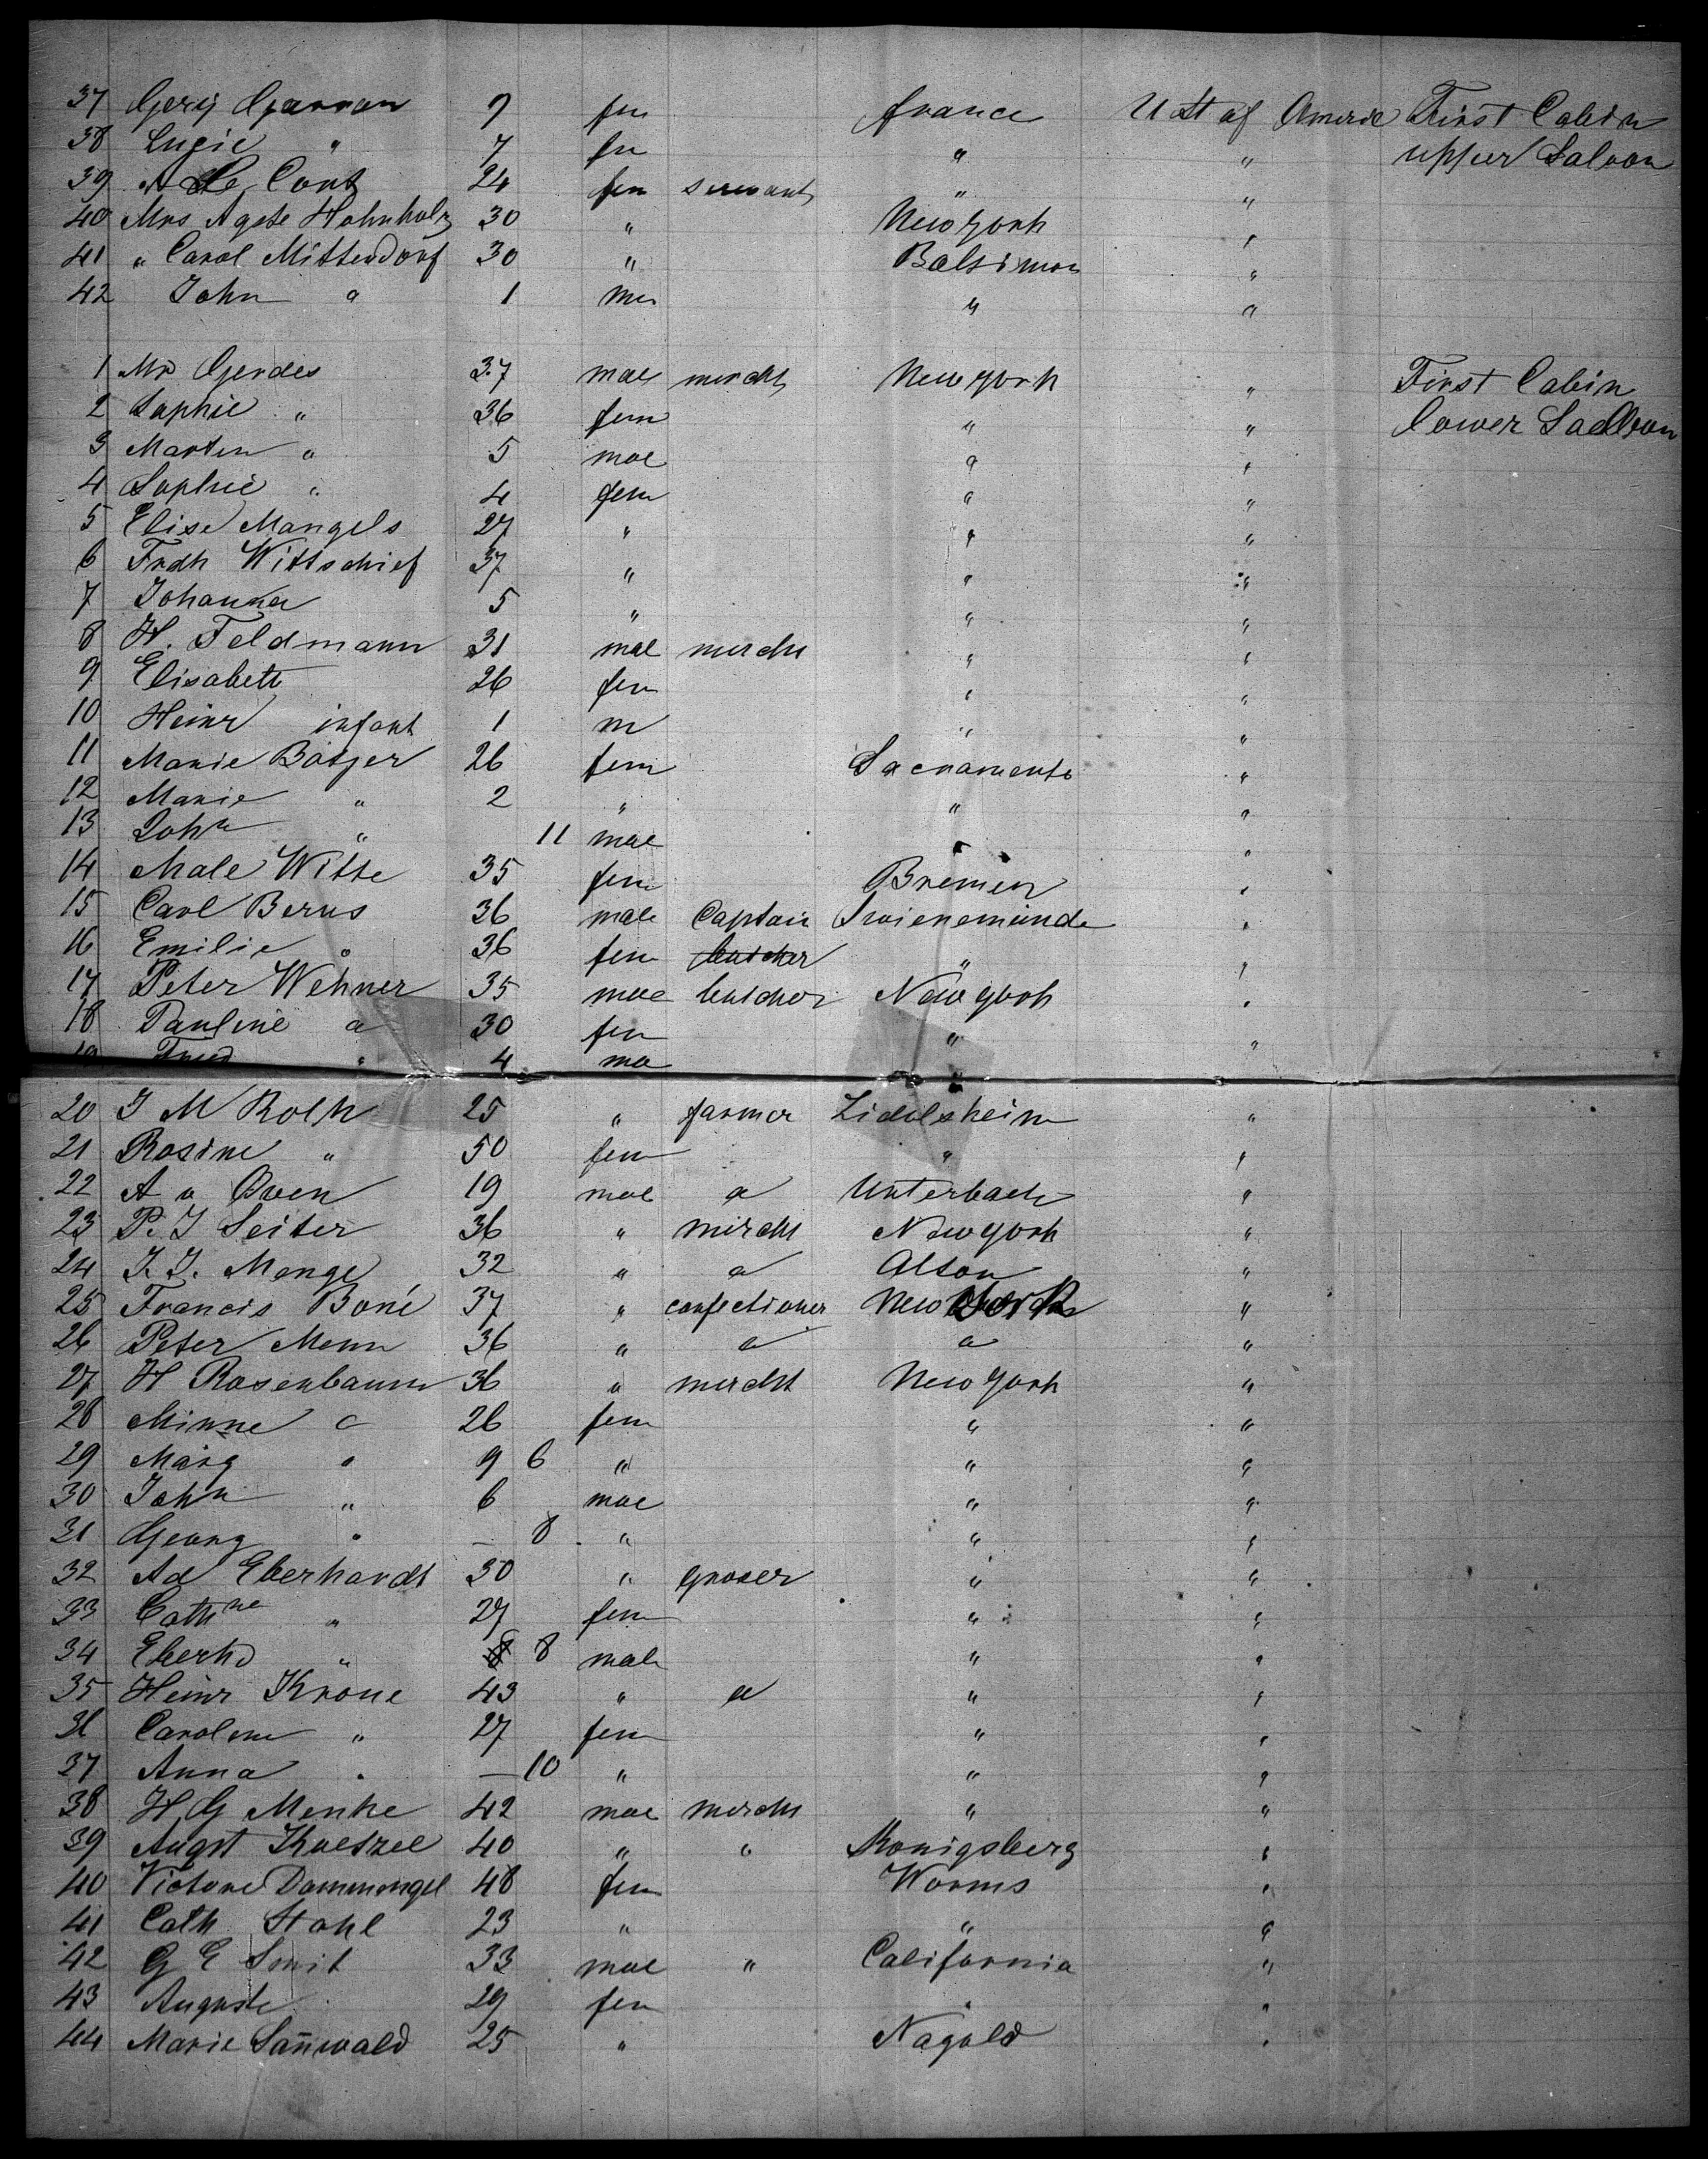 37 Gerij Garran 9 fem france U St of Americ First Cabin
38 Lugie " 7 fem " " upper Saloon
39 A Le Cont 24 fem servant " "
40 Mrs Agste Hohnholz 30 " New york "
41 " Carol Mittendorf 30 " Baltimor "
42 John " 1 m " "
1 Mr Gerdes 37 male mercht New york " First Cabin
2 Sophie " 36 fem " " lower Salloon
3 Marten " 5 mal " "
4 Sophie " 4 fem " "
5 Elise Mangels 27 " " "
6 Frdh Wittschief 37 " " "
7 Johanna 5 " " "
8 H. Feldmann 31 mal mercht " "
9 Elisabett 26 fem " "
10 Heinr infant 1 m " "
11 Marie Bätjer 26 fem Sacramento "
12 Marie " 2 " " "
13 John " 11 mal " "
14 Male Witte 35 fem Bremen "
15 Carl Berus 36 male Captain Swienemünde "
16 Emilie " 36 fem butcher " "
17 Peter Wehner 35 mal butcher New york "
18 Pauline " 30 fem " "
19 Fried " 4 ma "
20 J M Roth 25 " farmer Lidolsheim "
21 Rosine " 50 fem " "
22 A v Oven 19 mal " Unterbach "
23 P. J Seiter 36 " mircht New york "
24 J. J. Menge 32 " " Alton "
25 Francis Boné 37 " confectioner New York "
26 Peter Menn 36 " " " "
27 H Rosenbaum 36 " mercht New york "
28 Minne " 26 fem " "
29 Marg " 9 6 " " "
30 John " 6 mal " "
31 Georg " — 8 " " "
32 Ad Eberhardt 30 " groser " "
33 Cathne " 27 fem " "
34 Eberhd " 8 8 male " "
35 Heinr Krone 43 " " " "
36 Carolem " 27 fem " "
37 Anna " — 10 " " "
38 H G Menke 42 mal mercht " "
39 Augst Kuetzel 40 " " Konigsberg "
40 Victore Dammingel 48 fem Worms "
41 Cath Stahl 23 " " "
42 G E Smit 33 mal " California "
43 Auguste 29 fem " "
44 Marie San̄wald 25 " Nagold "